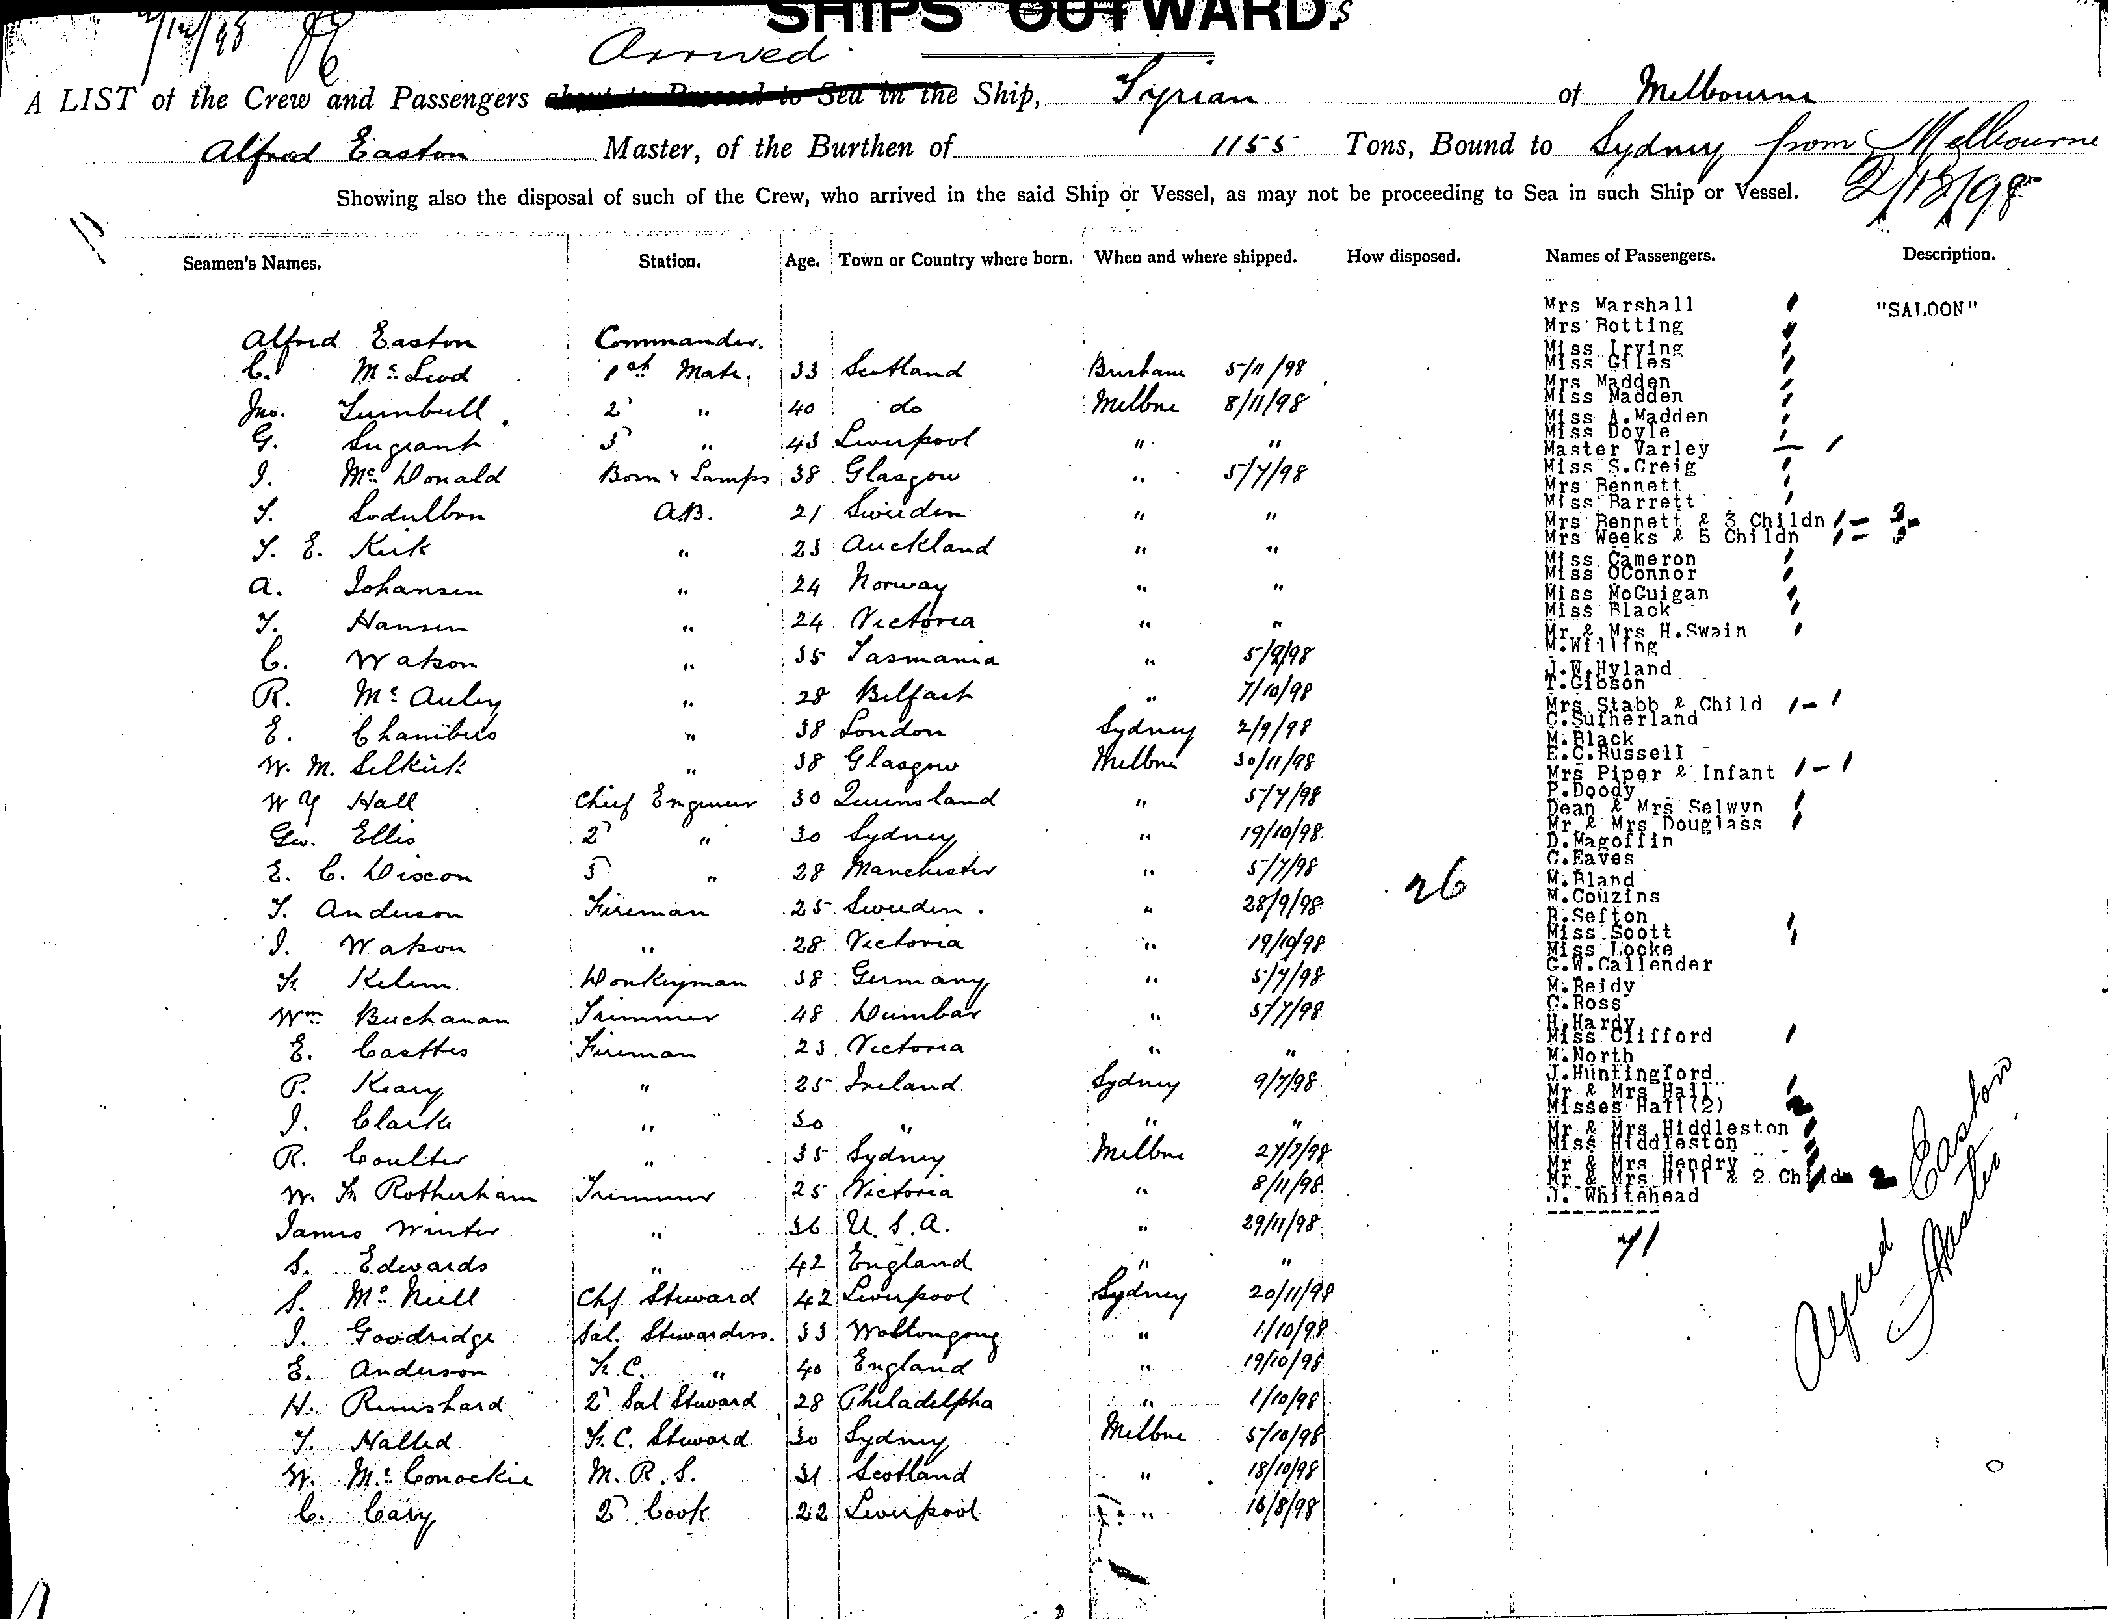 SHIPS OUTWARDS
2/12/98
Arrived
A LIST of the Crew and Passengers about to Proceed to Sea in the Ship, Syrian of Melbourne
Alfred Easton Master, of the Burthen of 1155 Tons, Bound to Sydney from Melbourne
Showing also the disposal of such of the Crew, who arrived in the said Ship or Vessel, as may not be proceeding to Sea in such Ship or Vessel. 2/12/98
Seamen's Names. Station. Age. Town or Country where born. When and where shipped. How disposed. Names of Passengers. Description.
Alfred Easton Commander.
C. McLeod 1st Mate. 33 Scotland Brisbane 5/11/98
Jno. Turnbull 2 " 40 do Melbne 8/11/98
G. Sugrant 3 " 43 Liverpool " "
J. McDonald Bosn & Lamps 38 Glasgow " 5/7/98
T. A.B. 21 Sweden " "
T. E. Kirk " 23 Auckland " "
A. Johansen " 24 Norway " "
T. Hansen " 24 Victoria " "
C. Watson " 35 Tasmania " 5/9/98
R. McAuley " 28 Belfast " 7/10/98
E. Chambers " 38 London Sydney 2/9/98
W. M. Selkirk " 38 Glasgow Melbne 30/11/98
W G Hall Chief Engineer 30 Queensland " 5/7/98
Geo. Ellis 2 " 30 Sydney " 19/10/98
E. C. Discon 3 " 28 Manchester " 5/7/98
T. Anderson Fireman 25 Sweden. " 28/9/98
J. Watson " 28 Victoria " 19/10/98
Kelem Donkeyman 38 Germany " 5/7/98
Wm Buchanan Trimmer 48 Dumbar " 5/7/98
E. Casttes Fireman 23 Victoria " "
P. Keary " 25 Ireland Sydney 9/7/98
J. Clarke " 30 " " "
R. Coulter " 35 Sydney Melbne 27/7/98
W. H. Rotherham Trimmer 25 Victoria " 8/11/98
James Winter " 36 U.S.A. " 29/11/98
S. Edwards " 42 England " "
S. McNeill Chf Steward 42 Liverpool Sydney 20/11/98
J. Goodridge Sal. Stewardess. 33 Wollongong " 1/10/98
E. Anderson F.C. " 40 England " 19/10/98
H. Rimshard 2 Sal Steward 28 Philadelpha " 1/10/98
T. Halled F.C. Steward 30 Sydney Melbne 5/10/98
W. McConockie M.R.S. 31 Scotland " 18/10/98
C. Cary 2 Cook 22 Liverpool " 16/8/98
26
"SALOON"
Mrs Marshall
Mrs Botting
Miss Irving
Miss Giles
Mrs Madden
Miss Madden
Miss A.Madden
Miss Doyle
Master Varley
Miss S.Creig
Mrs Bennett
Miss Barrett
Mrs Bennett & 3 Childn 1 - 3
Mrs Weeks & 5 Childn 1 - 5
Miss Cameron
Miss OConnor
Miss McGuigan
Miss Black
Mr & Mrs H.Swain
M.Willing
J.W.Hyland
T.Gibson
Mrs Stabb & Child 1 - 1
C.Sutherland
M.Black
E.C.Russell
Mrs Piper & Infant 1 - 1
P.Doody
Dean & Mrs Selwyn
Mr & Mrs Douglass
D.Magoffin
C.Eaves
M.Bland
M.Couzins
R.Sefton
Miss Scott
Miss Locke
G.W.Callender
M.Reidy
C.Ross
H.Hardy
Miss Clifford
M.North
J.Huntingford
Mr & Mrs Hall
Misses Hall(2)
Mr & Mrs Hiddleston
Miss Hiddleston
Mr & Mrs Hendry
Mr & Mrs Hill & 2 Childn 2
J. Whitehead
71
Alfred Easton
Master